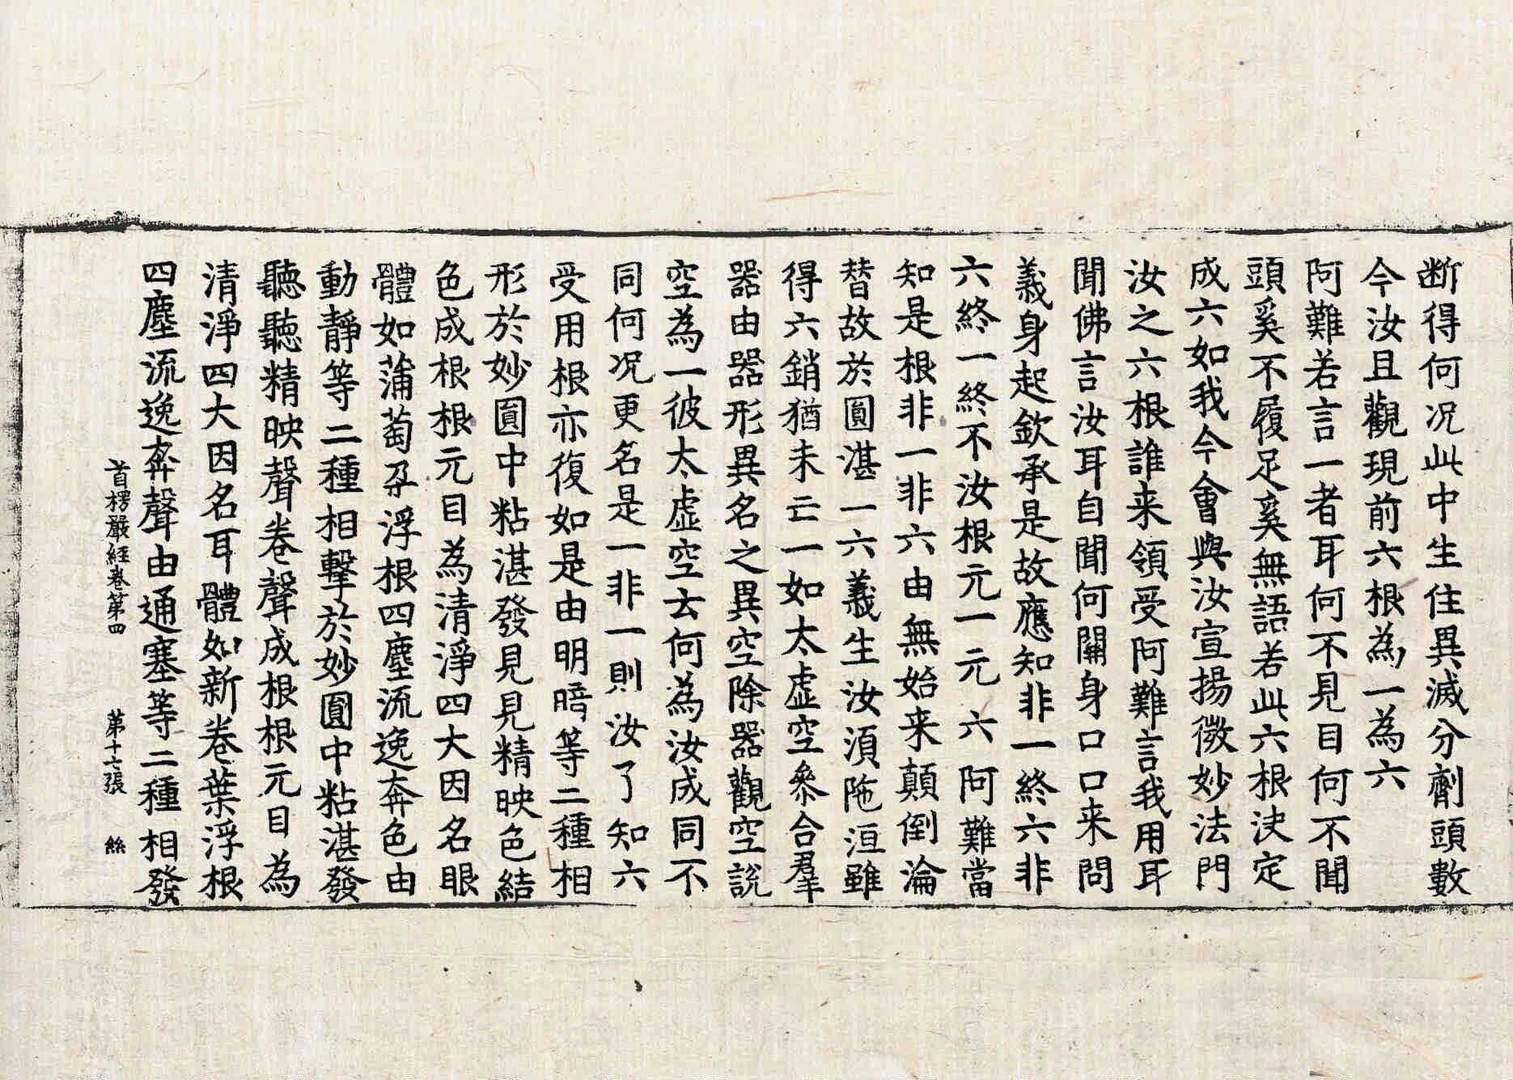 断得何况此中生住異滅分劑頭數
今汝且觀現前六根為一為六
阿難若言一者耳何不見目何不聞
頭奚不履足奚無語若此六根決定
成六如我今會與汝宣揚微妙法門
汝之六根誰来領受阿難言我用耳
聞佛言汝耳自聞何關身口口来問
義身起欽承是故應知非一終六非
六終一終不汝根元一元六阿難當
知是根非一非六由無始来顛倒淪
替故於圓湛一六義生汝湏陁洹雖
得六銷猶未亡一如太虛空叅合羣
器由器形異名之異空除器觀空說
空為一彼太虛空云何為汝成同不
同何况更名是一非一則汝了知六
受用根亦復如是由明暗等二種相
形於妙圓中粘湛發見見精映色結
色成根根元目為清淨四大因名眼
體如蒲萄朶浮根四塵流逸奔色由
動靜等二種相擊於妙圓中粘湛發
聽聽精映聲卷聲成根根元目為
清淨四大因名耳體如新卷葉浮根
四塵流逸奔聲由通塞等二種相發
首楞嚴經卷第四 第十七張 絲